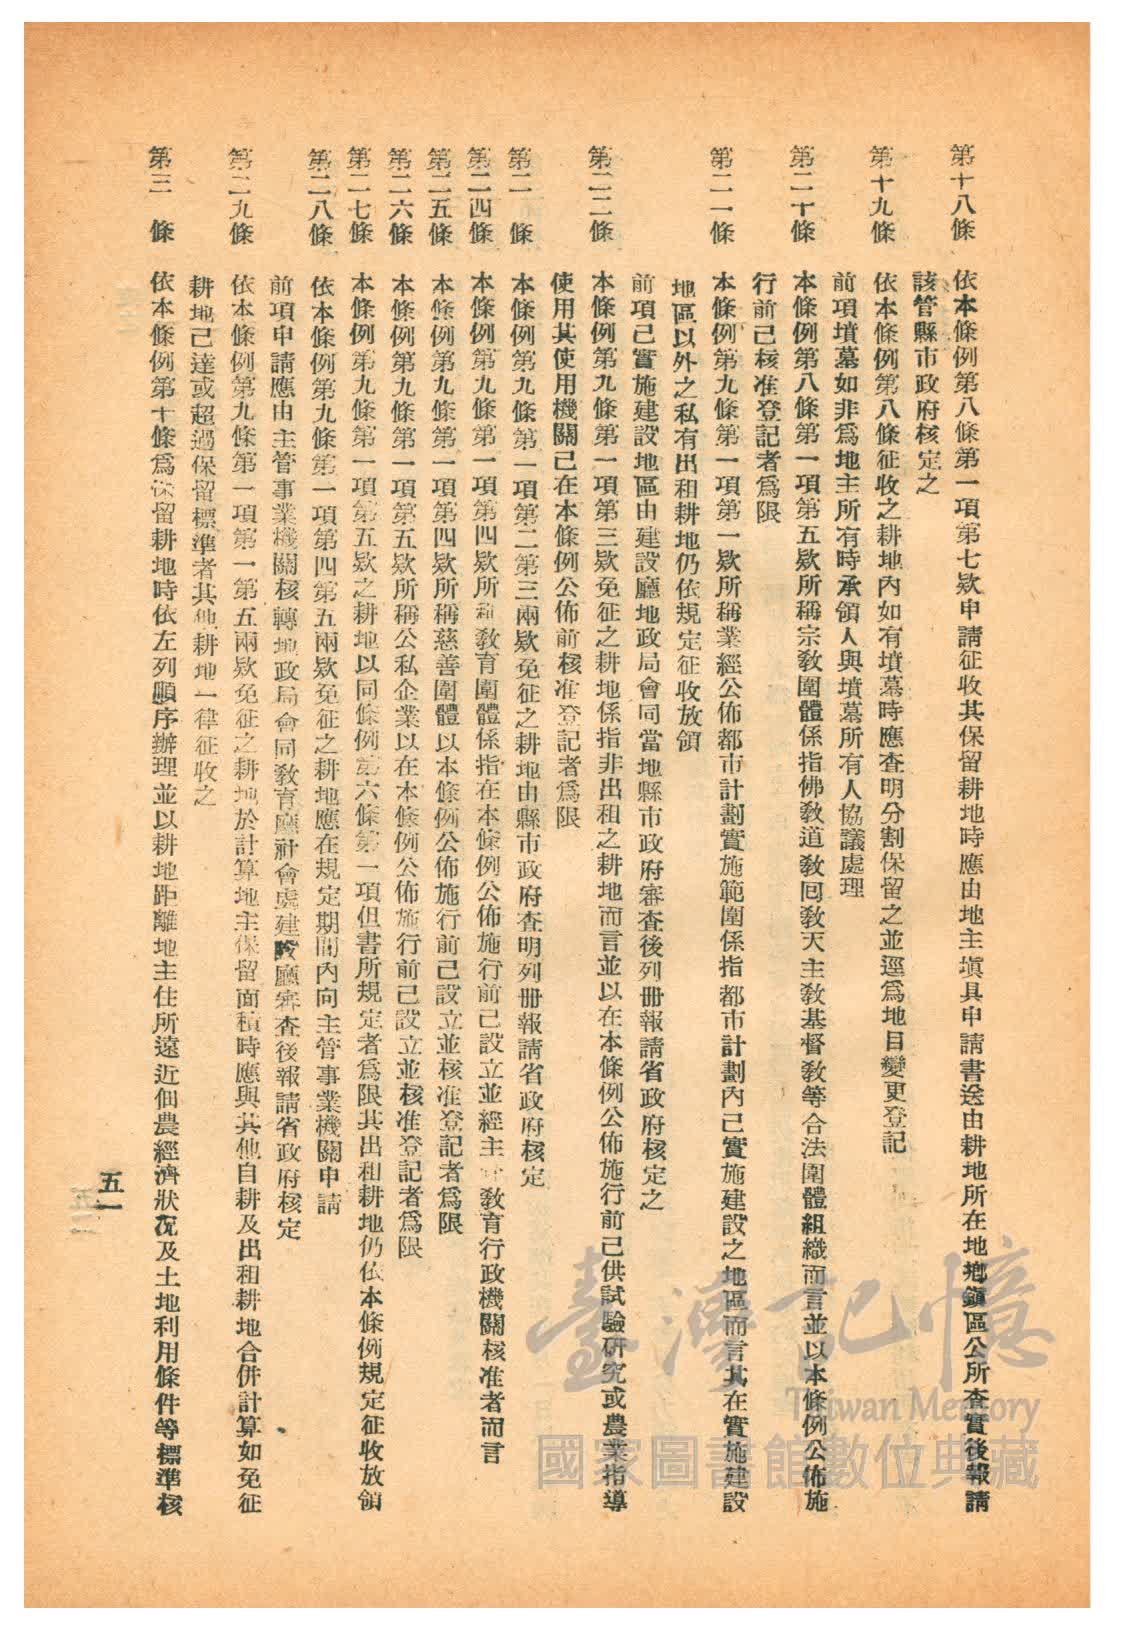 第十八條　依本條例第八條第一項第七欵申請征收其保留耕地時應由地主塡具申請書送由耕地所在地鄕鎭區公所查實後報請
該管縣市政府核定之
第十九條　依本條例第八條征收之耕地內如有墳墓時應查明分割保留之並逕爲地目變更登記
前項墳墓如非爲地主所有時承領人與墳墓所有人協議處理
第二十條　本條例第八條第一項第五欵所稱宗敎團體係指佛敎道敎回敎天主敎基督敎等合法團體組織而言並以本條例公佈施
行前已核准登記者爲限
第二一條　本條例第九條第一項第一欵所稱業經公佈都市計劃實施範圍係指都市計劃內已實施建設之地區而言其在實施建設
地區以外之私有出租耕地仍依規定征收放領
前項已實施建設地區由建設廳地政局會同當地縣市政府審查後列冊報請省政府核定之
第二二條　本條例第九條第一項第三欵免征之耕地係指非出租之耕地而言並以在本條例公佈施行前已供試驗研究或農業指導
使用其使用機關已在本條例公佈前核准登記者爲限
第二　條　本條例第九條第一項第二第三兩欵免征之耕地由縣市政府查明列冊報請省政府核定
第二四條　本條例第九條第一項第四欵所　敎育團體係指在本條例公佈施行前已設立並經主　敎育行政機關核准者而言
第二五條　本條例第九條第一項第四欵所稱慈善團體以本條例公佈施行前已設立並核准登記者爲限
第二六條　本條例第九條第一項第五欵所稱公私企業以在本條例公佈施行前已設立並核准登記者爲限
第二七條　本條例第九條第一項第五欵之耕地以同條例第六條第一項但書所規定者爲限其出租耕地仍依本條例規定征收放領
第二八條　依本條例第九條第一項第四第五兩欵免征之耕地應在規定期間內向主管事業機關申請
前項申請應由主管事業機關核轉地政局會同敎育廳社會處建設廳審查後報請省政府核定
第二九條　依本條例第九條第一項第一第五兩欵免征之耕地於計算地主保留面積時應與其他自耕及出租耕地合併計算如免征
耕地已達或超過保留標準者其他耕地一律征收之
第三　條　依本條例第十條爲保留耕地時依左列順序辦理並以耕地距離地主住所遠近佃農經濟狀况及土地利用條件等標準核
五一
臺灣記憶
Taiwan Memory
國家圖書館數位典藏